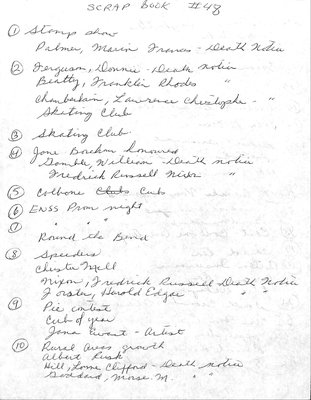 SCRAP BOOK #48
① Stamp show
Palmer, Marin Francis - Death Notice
② Ferguson, Donnie - Death notice
Beatty, Franklin Rhodes "
Chamberlain, Lawrence Christopher - "
Skating Club
③ Skating Club
④ Jane honoured
Gamble, William - Death notice
Fredrick Russell Nixon "
⑤ Colborne Clubs Cubs
⑥ ENSS Prom night
⑦ " "
Round the Bend
⑧ Speeders
Chester Mill
Nixon, Fredrick Russell Death Notice
Forster, Harold Edgar " "
⑨ Pie contest
Cub of year
Jana Ewart - Artist
⑩ Rural Areas growth
Albert Rusk
Hill, Lorne Clifford - Death notice
Goddard, Morse M. " "